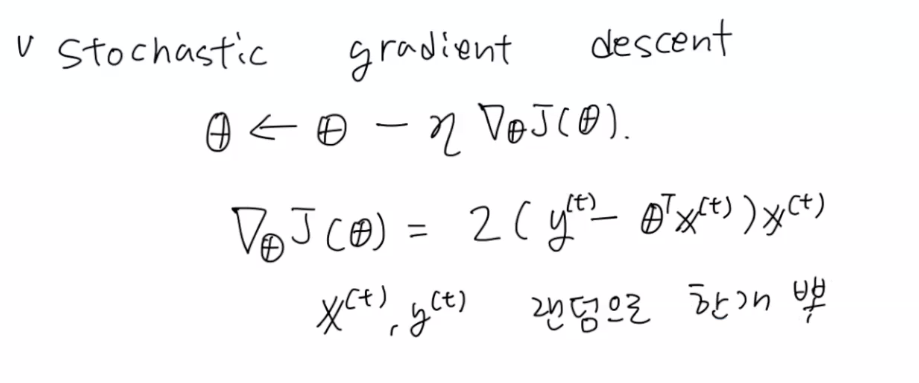 v Stochastic gradient descent
θ ← θ − η ∇θJ(θ).
∇θJ(θ) = 2(y⁽ᵗ⁾ − θᵀx⁽ᵗ⁾)x⁽ᵗ⁾
x⁽ᵗ⁾, y⁽ᵗ⁾ 랜덤으로 한개